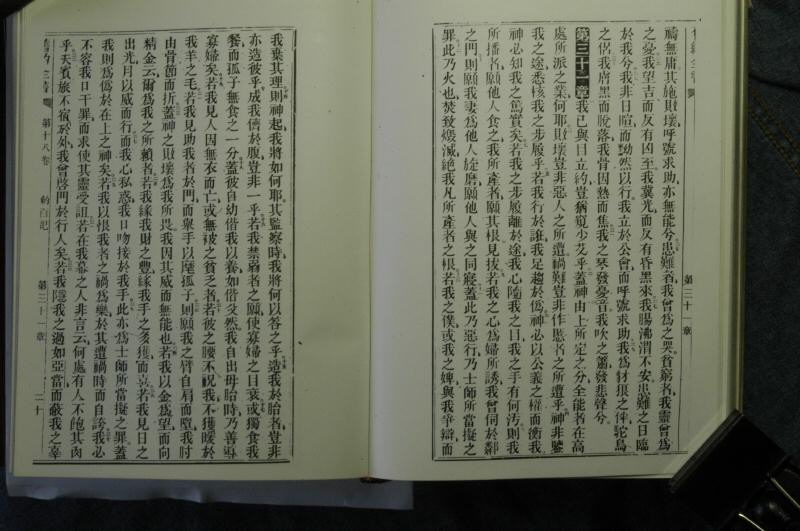 第三十一章
禱無庸其施敗壞呼號求助亦無能兮患難者我曾爲之哭貧窮者我靈曾爲
之憂我望吉而反有凶至我冀光而反有昏黑來我腸沸渭不安患難之日臨
於我兮我非日暄而黝然以行我立於公會而呼號求助我爲豺狼之伴鴕鳥
之侶我膚黑而脫落我骨因熱而焦我之琴發憂音我吹之簫發悲聲兮
第三十一章我已與目立約豈猶窺少艾乎蓋神由上所定之分全能者在高
處所派之業何耶敗壞豈非惡人之所遭禍難豈非作慝者之所遭乎神非鑒
我之途悉核我之步履乎若我行於誑我足趨於僞神必以公義之權而衡我
神必知我之篤實矣若我之步履離於途我心隨我之目我之手有何污則我
所播者願他人食之我所產者願其根見拔若我之心爲婦所誘我曾伺於鄰
之門則願我妻爲他人旋磨願他人與之同寢蓋此乃惡行乃士師所當擬之
罪此乃火也焚致燬滅絕我凡所產者之根若我之僕或我之婢與我爭辯而
我棄其理則神起我將如何耶其監察時我將何以答之乎造我於胎者豈非
亦造彼乎成我儕於腹豈非一乎若我禁弱者之願使寡婦之目衰或獨食我
餐而孤子無食之一分蓋彼自幼偕我以養如偕父然我自出母胎時乃善導
寡婦矣若我見人因無衣而亡或無被之貧乏者若彼之腰不祝我不獲暖於
我羊之毛若我見助我者於門而舉手以麾孤子則願我之臂自肩而墮我肘
由骨節而折蓋神之敗壞爲我所畏我因其威而無能也若我以金爲望而向
精金云爾爲我之所賴者若我緣我財之豐緣我手之多獲而喜若我見日之
出光月以威而行而我心私惑我口吻接於我手此亦爲士師所當擬之罪蓋
我則爲僞於在上之神矣若我以恨我者之禍爲樂於其遭禍時而自誇我必
不容我口干罪而求使其靈受詛若在我幕之人非言云何處有人不飽其肉
乎夭賓旅不宿於外我曾啓門於行人矣若我隱我之過如亞當而蔽我之辜
第十八卷 約百記 第三十一章 二十